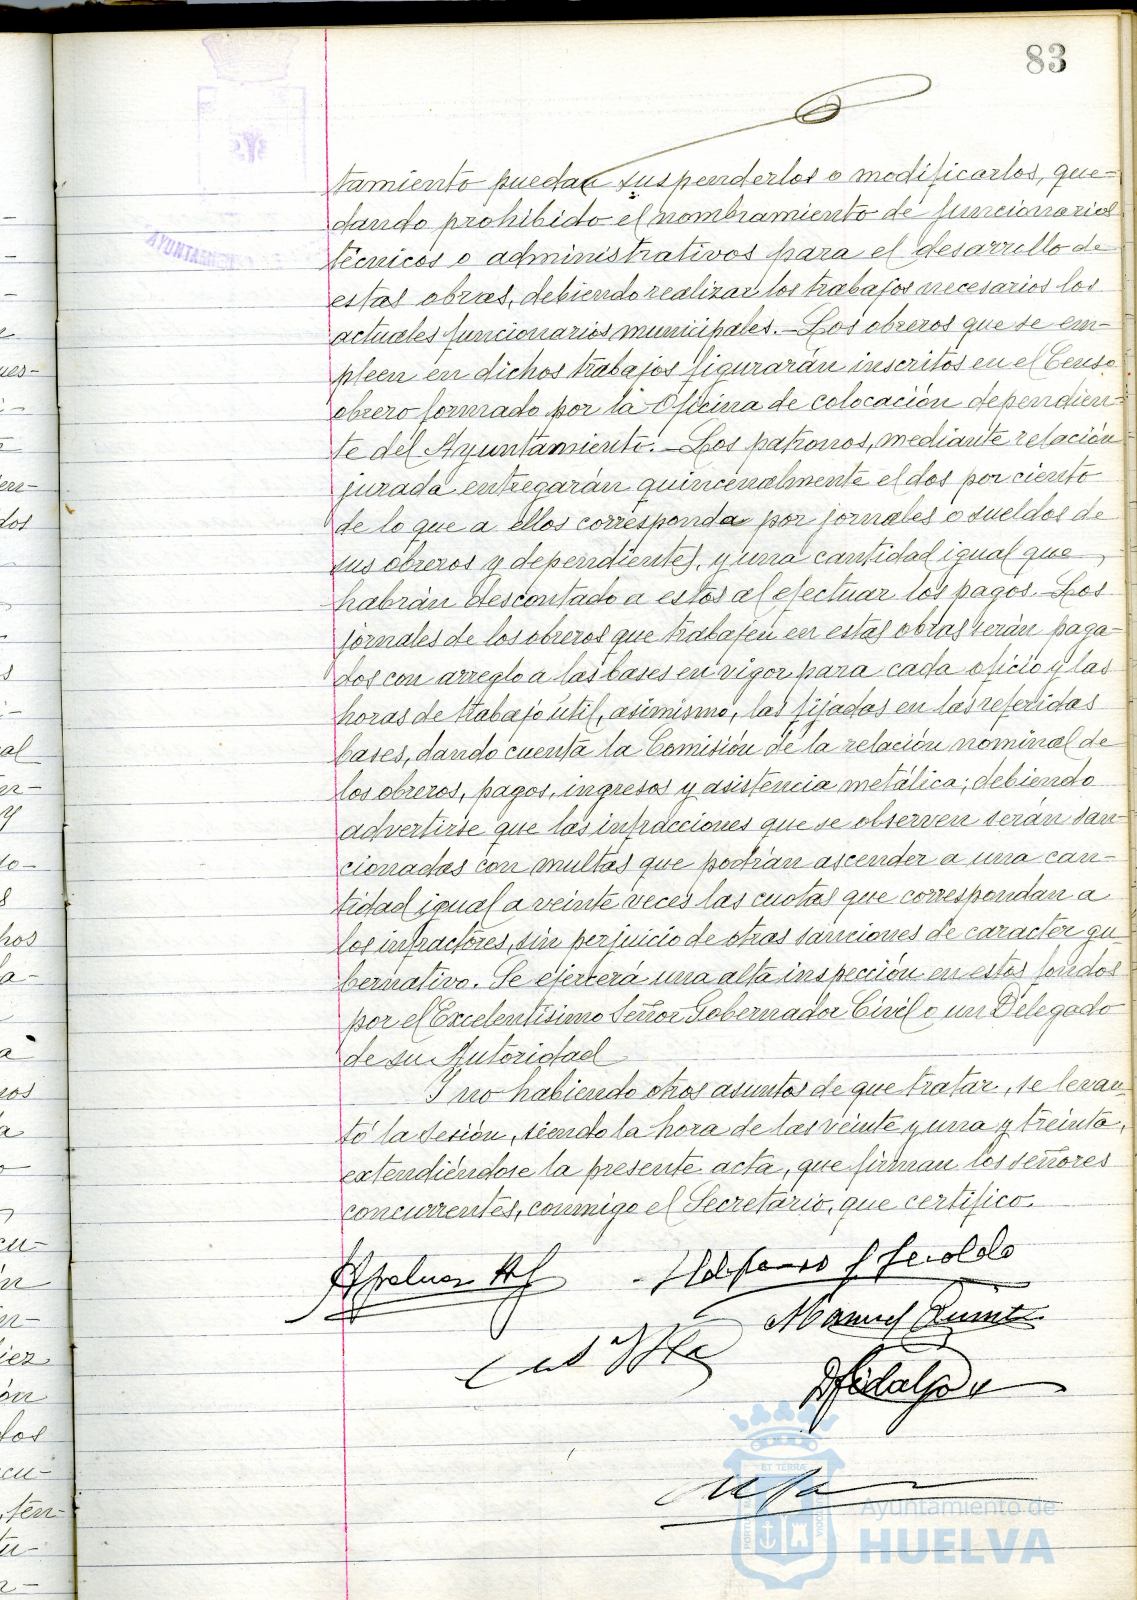 83
tamiento puedan suspenderlos o modificarlos, que-
dando prohibido el nombramiento de funcionarios
técnicos o administrativos para el desarrollo de
estas obras, debiendo realizar los trabajos necesarios los
actuales funcionarios municipales.-Los obreros que se em-
pleen en dichos trabajos figurarán inscritos en el Censo
obrero formado por la Oficina de colocación dependien-
te del Ayuntamiento.-Los patronos, mediante relación
jurada entregarán quincenalmente el dos por ciento
de lo que a ellos corresponda por jornales o sueldos de
sus obreros y dependientes, y una cantidad igual que
habrán descontado a estos al efectuar los pagos.-Los
jornales de los obreros que trabajen en estas obras serán paga-
dos con arreglo a las bases en vigor para cada oficio y las
horas de trabajo útil, asimismo, las fijadas en las referidas
bases, dando cuenta la Comisión de la relación nominal de
los obreros, pagos, ingresos y asistencia metálica; debiendo
advertirse que las infracciones que se observen serán san-
cionadas con multas que podrían ascender a una can-
tidad igual a veinte veces las cuotas que correspondan a
los infractores, sin perjuicio de otras sanciones de caracter gu-
bernativo. Se ejercerá una alta inspección en estos fondos
por el Excelentísimo Señor Gobernador Civil o un Delegado
de su Autoridad
Y no habiendo otros asuntos de que tratar, se levan-
tó la sesión, siendo la hora de las veinte y una y treinta,
extendiéndose la presente acta, que firman los señores
concurrentes, conmigo el Secretario, que certifico.
Manuel
Hidalgo
Ayuntamiento de
HUELVA